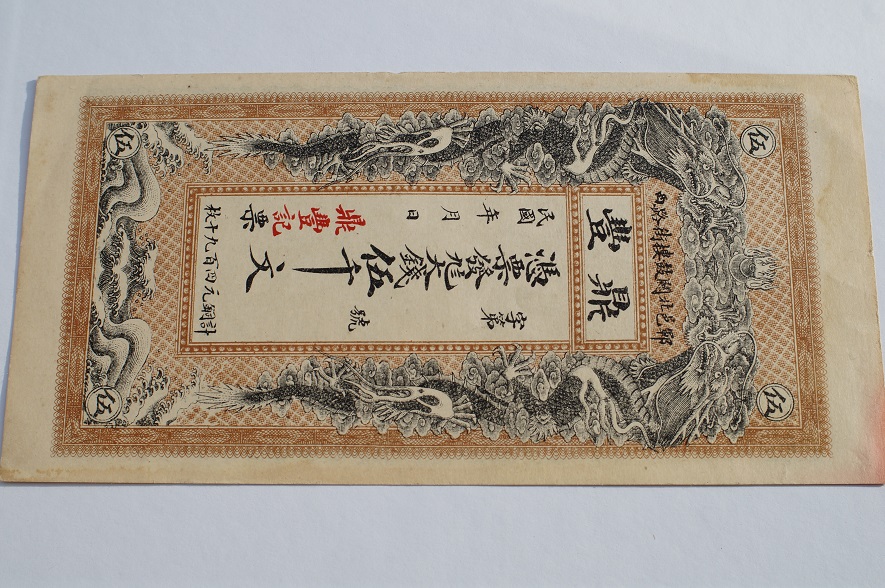 伍
伍
鄒邑北關鼓樓街路西
鼎豐
字第 號
憑票發 大錢伍千文
民國 年 月 日
鼎豐記
票
計銅元四百九十枚
伍
伍